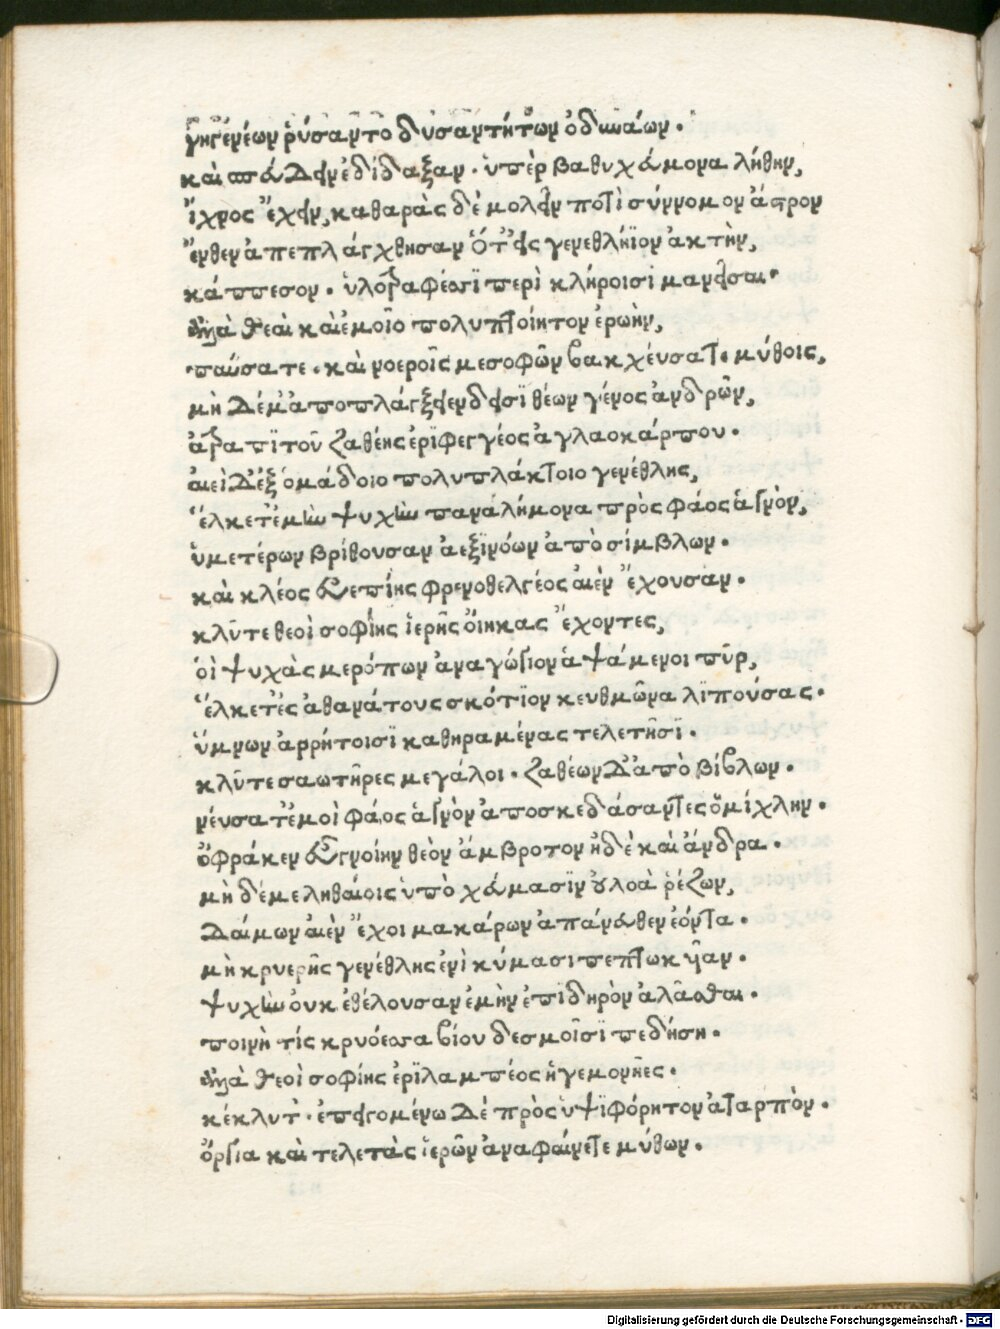 γηγενέων ῥύσαντο δυσαντήτων ὀδυνάων.
καὶ σπεύδειν ἐδίδαξαν. ὑπὲρ βαθυχεύμονα λήθην,
ἴχνος ἔχειν, καθαρὰς δὲ μολεῖν ποτὶ σύννομον ἄστρον
ἔνθεν ἀπεπλάγχθησαν ὅτ' εἰς γενεθλήϊον ἀκτὴν,
κάππεσον. ὑλοτραφέσσι περὶ κλήροισι μανεῖσαι·
ἀλλὰ θεαὶ καὶ ἐμοῖο πολυπτοίητον ἐρωὴν,
παύσατε. καὶ νοεροῖς με σοφῶν βακχεύσατε μύθοις,
μὴ δέ μ' ἀποπλάγξειεν δεισιθέων γένος ἀνδρῶν,
ἀτραπιτοῦ ζαθέης ἐριφεγγέος ἀγλαοκάρπου.
αἰεὶ δ' ἐξ ὁμάδοιο πολυπλάκτοιο γενέθλης,
ἕλκετ' ἐμὴν ψυχὴν παναλήμονα πρὸς φάος ἁγνὸν,
ὑμετέρων βρίθουσαν ἀεξινόων ἀπὸ σίμβλων.
καὶ κλέος εὐεπίης φρενοθελγέος αἰὲν ἔχουσαν.
κλῦτε θεοὶ σοφίης ἱερῆς οἴηκας ἔχοντες,
οἱ ψυχὰς μερόπων ἀναγώγιον ἁψάμενοι πῦρ,
ἕλκετ' ἐς ἀθανάτους σκότιον κευθμῶνα λιπούσας.
ὕμνων ἀρρήτοισι καθηραμένας τελετῆσι.
κλῦτε σαωτῆρες μεγάλοι. ζαθέων δ' ἀπὸ βίβλων.
νεύσατ' ἐμοὶ φάος ἁγνὸν ἀποσκεδάσαντες ὁμίχλην.
ὄφρά κεν εὖ γνοίην θεὸν ἄμβροτον ἠδὲ καὶ ἄνδρα.
μὴ δέ με ληθαίοις ὑπὸ χεύμασιν οὐλοὰ ῥέζων,
δαίμων αἰὲν ἔχοι μακάρων ἀπάνευθεν ἐόντα.
μὴ κρυερῆς γενέθλης ἐνὶ κύμασι πεπτωκυῖαν.
ψυχὴν οὐκ ἐθέλουσαν ἐμὴν ἐπιδηρὸν ἀλᾶσθαι.
ποινὴ τίς κρυόεσσα βίου δεσμοῖσι πεδήσῃ.
ἀλλὰ θεοὶ σοφίης ἐριλαμπέος ἡγεμονῆες.
κέκλυτ'. ἐπειγομένω δὲ πρὸς ὑψιφόρητον ἀταρπὸν.
ὄργια καὶ τελετὰς ἱερῶν ἀναφαίνετε μύθων.
Digitalisierung gefördert durch die Deutsche Forschungsgemeinschaft - DFG